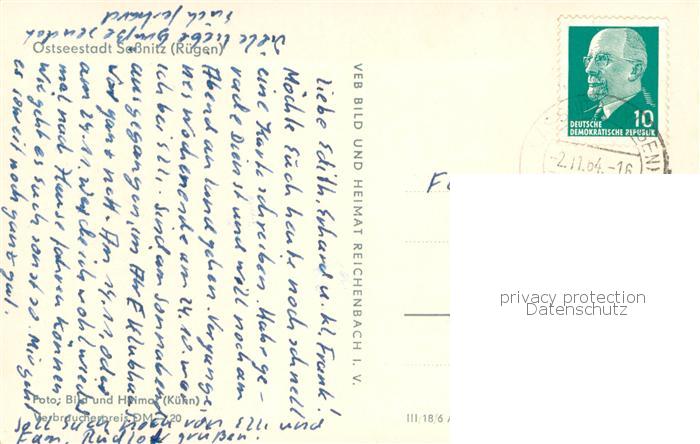 Ostseestadt Saßnitz (Rügen)
Liebe Edith, Erhard u. kl. Frank!
Möchte Euch heute noch schnell
eine Karte schreiben. Habe ge-
rade Dienst und will noch am
Abend an Land gehen. Vergange-
nes Wochenende am 24.10. war
ich bei Elli. Sind am Sonnabend
ausgegangen, im Klubhaus
War ganz nett. Am 14.11. oder
am 24.11. werde ich wohl wieder
mal nach Hause fahren können
Wie geht es Euch sonst so. Mir geht
es soweit noch ganz gut.
Viele liebe Grüße sendet
Euch
soll Euch auch von Elli und
Fam. grüßen.
VEB BILD UND HEIMAT REICHENBACH I. V.
Foto: Bild und Heimat (Kühn)
Verbraucherpreis DM 0,20
III/18/6
10
DEUTSCHE
DEMOKRATISCHE REPUBLIK
-2.11.64.-16
privacy protection
Datenschutz